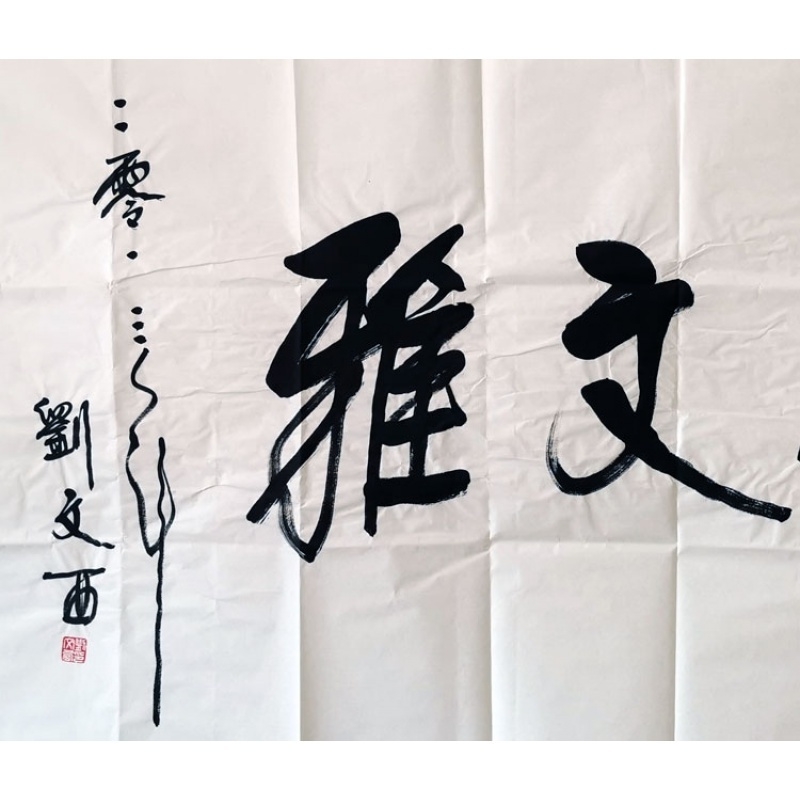 文雅
二零一三
劉文西